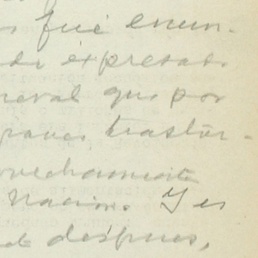 fué enun-
de expresat
naval que por
graves trastor-
ovechamiento
Nacion. Y es
de después,